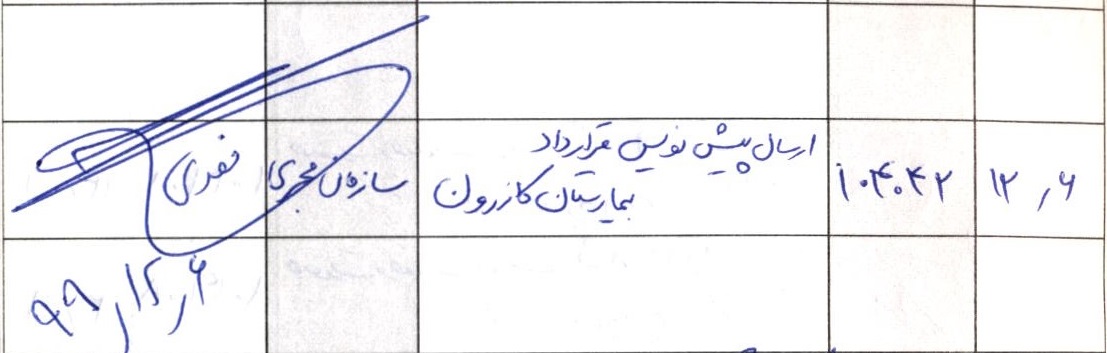 ۱۲٫۶
۱۰۴۰۴۲
ارسال پیش نویس قرارداد
بیمارستان کازرون
سازمان مجری
نقدی
۹۹٫۱۲٫۶